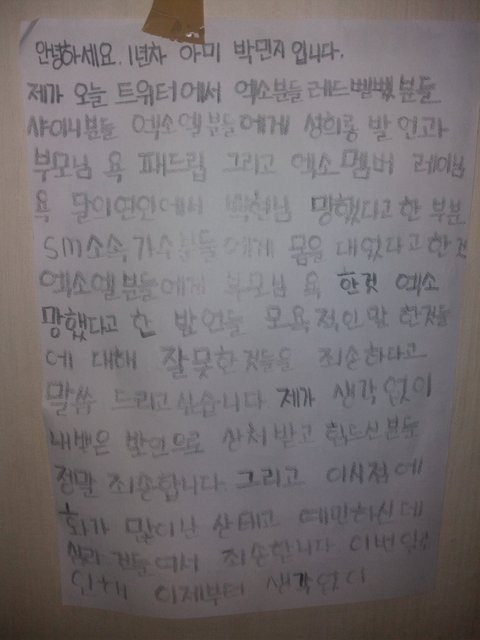 안녕하세요. 1년차 아미 박민지 입니다.
제가 오늘 트위터에서 엑소분들 레드벨벳분들
샤이니분들 엑소엘분들에게 성희롱 발언과
부모님 욕 패드립 그리고 엑소 멤버 레이님
욕 달의연인에서 백현님 망했다고 한 부분
SM소속 가수분들에게 몸을 대었다고 한것
엑소엘분들에게 부모님 욕 한것 엑소
망했다고 한 발언들 모욕적인 말 한것들
에 대해 잘못한것들을 죄송하다고
말씀 드리고 싶습니다 제가 생각없이
내뱉은 발언으로 상처 받고 힘드신분들
정말 죄송합니다. 그리고 이시점에
화가 많이난 상태고 예민하신데
심려 건들여서 죄송합니다 이번
이제부터 생각없이